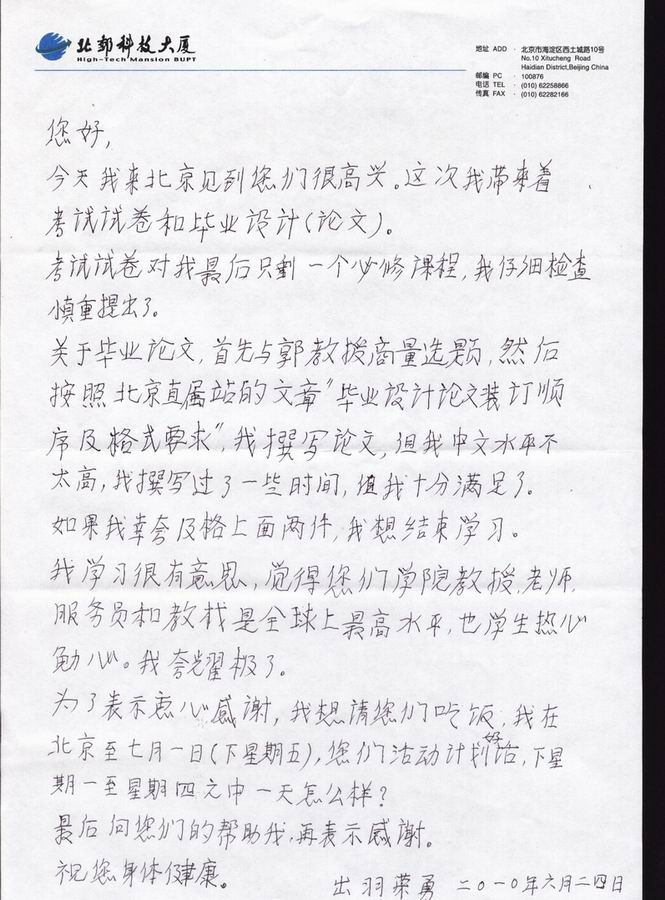 北邮科技大厦
High-Tech Mansion BUPT
地址 ADD · 北京市海淀区西土城路10号
No.10 Xitucheng Road
Haidian District,Beijing China
邮编 PC · 100876
电话 TEL · (010) 62258866
传真 FAX · (010) 62282166
您好,
今天我来北京见到您们很高兴。这次我带来着
考试试卷和毕业设计(论文)。
考试试卷对我最后只剩一个必修课程,我仔细检查
慎重提出了。
关于毕业论文,首先与郭教授商量选题,然后
按照北京直属站的文章"毕业设计论文装订顺
序及格式要求",我撰写论文,但我中文水平不
太高,我撰写过了一些时间,值我十分满足了。
如果我幸夸及格上面两件,我想结束学习。
我学习很有意思,觉得您们学院教授,老师,
服务员和教材是全球上最高水平,也学生热心
勉心。我夸耀极了。
为了表示衷心感谢,我想请您们吃饭,我在
北京至七月一日(下星期五),您们活动计划好话,下星
期一至星期四之中一天怎么样?
最后向您们的帮助我,再表示感谢。
祝您身体健康。
出羽荣勇 二〇一〇年六月二四日